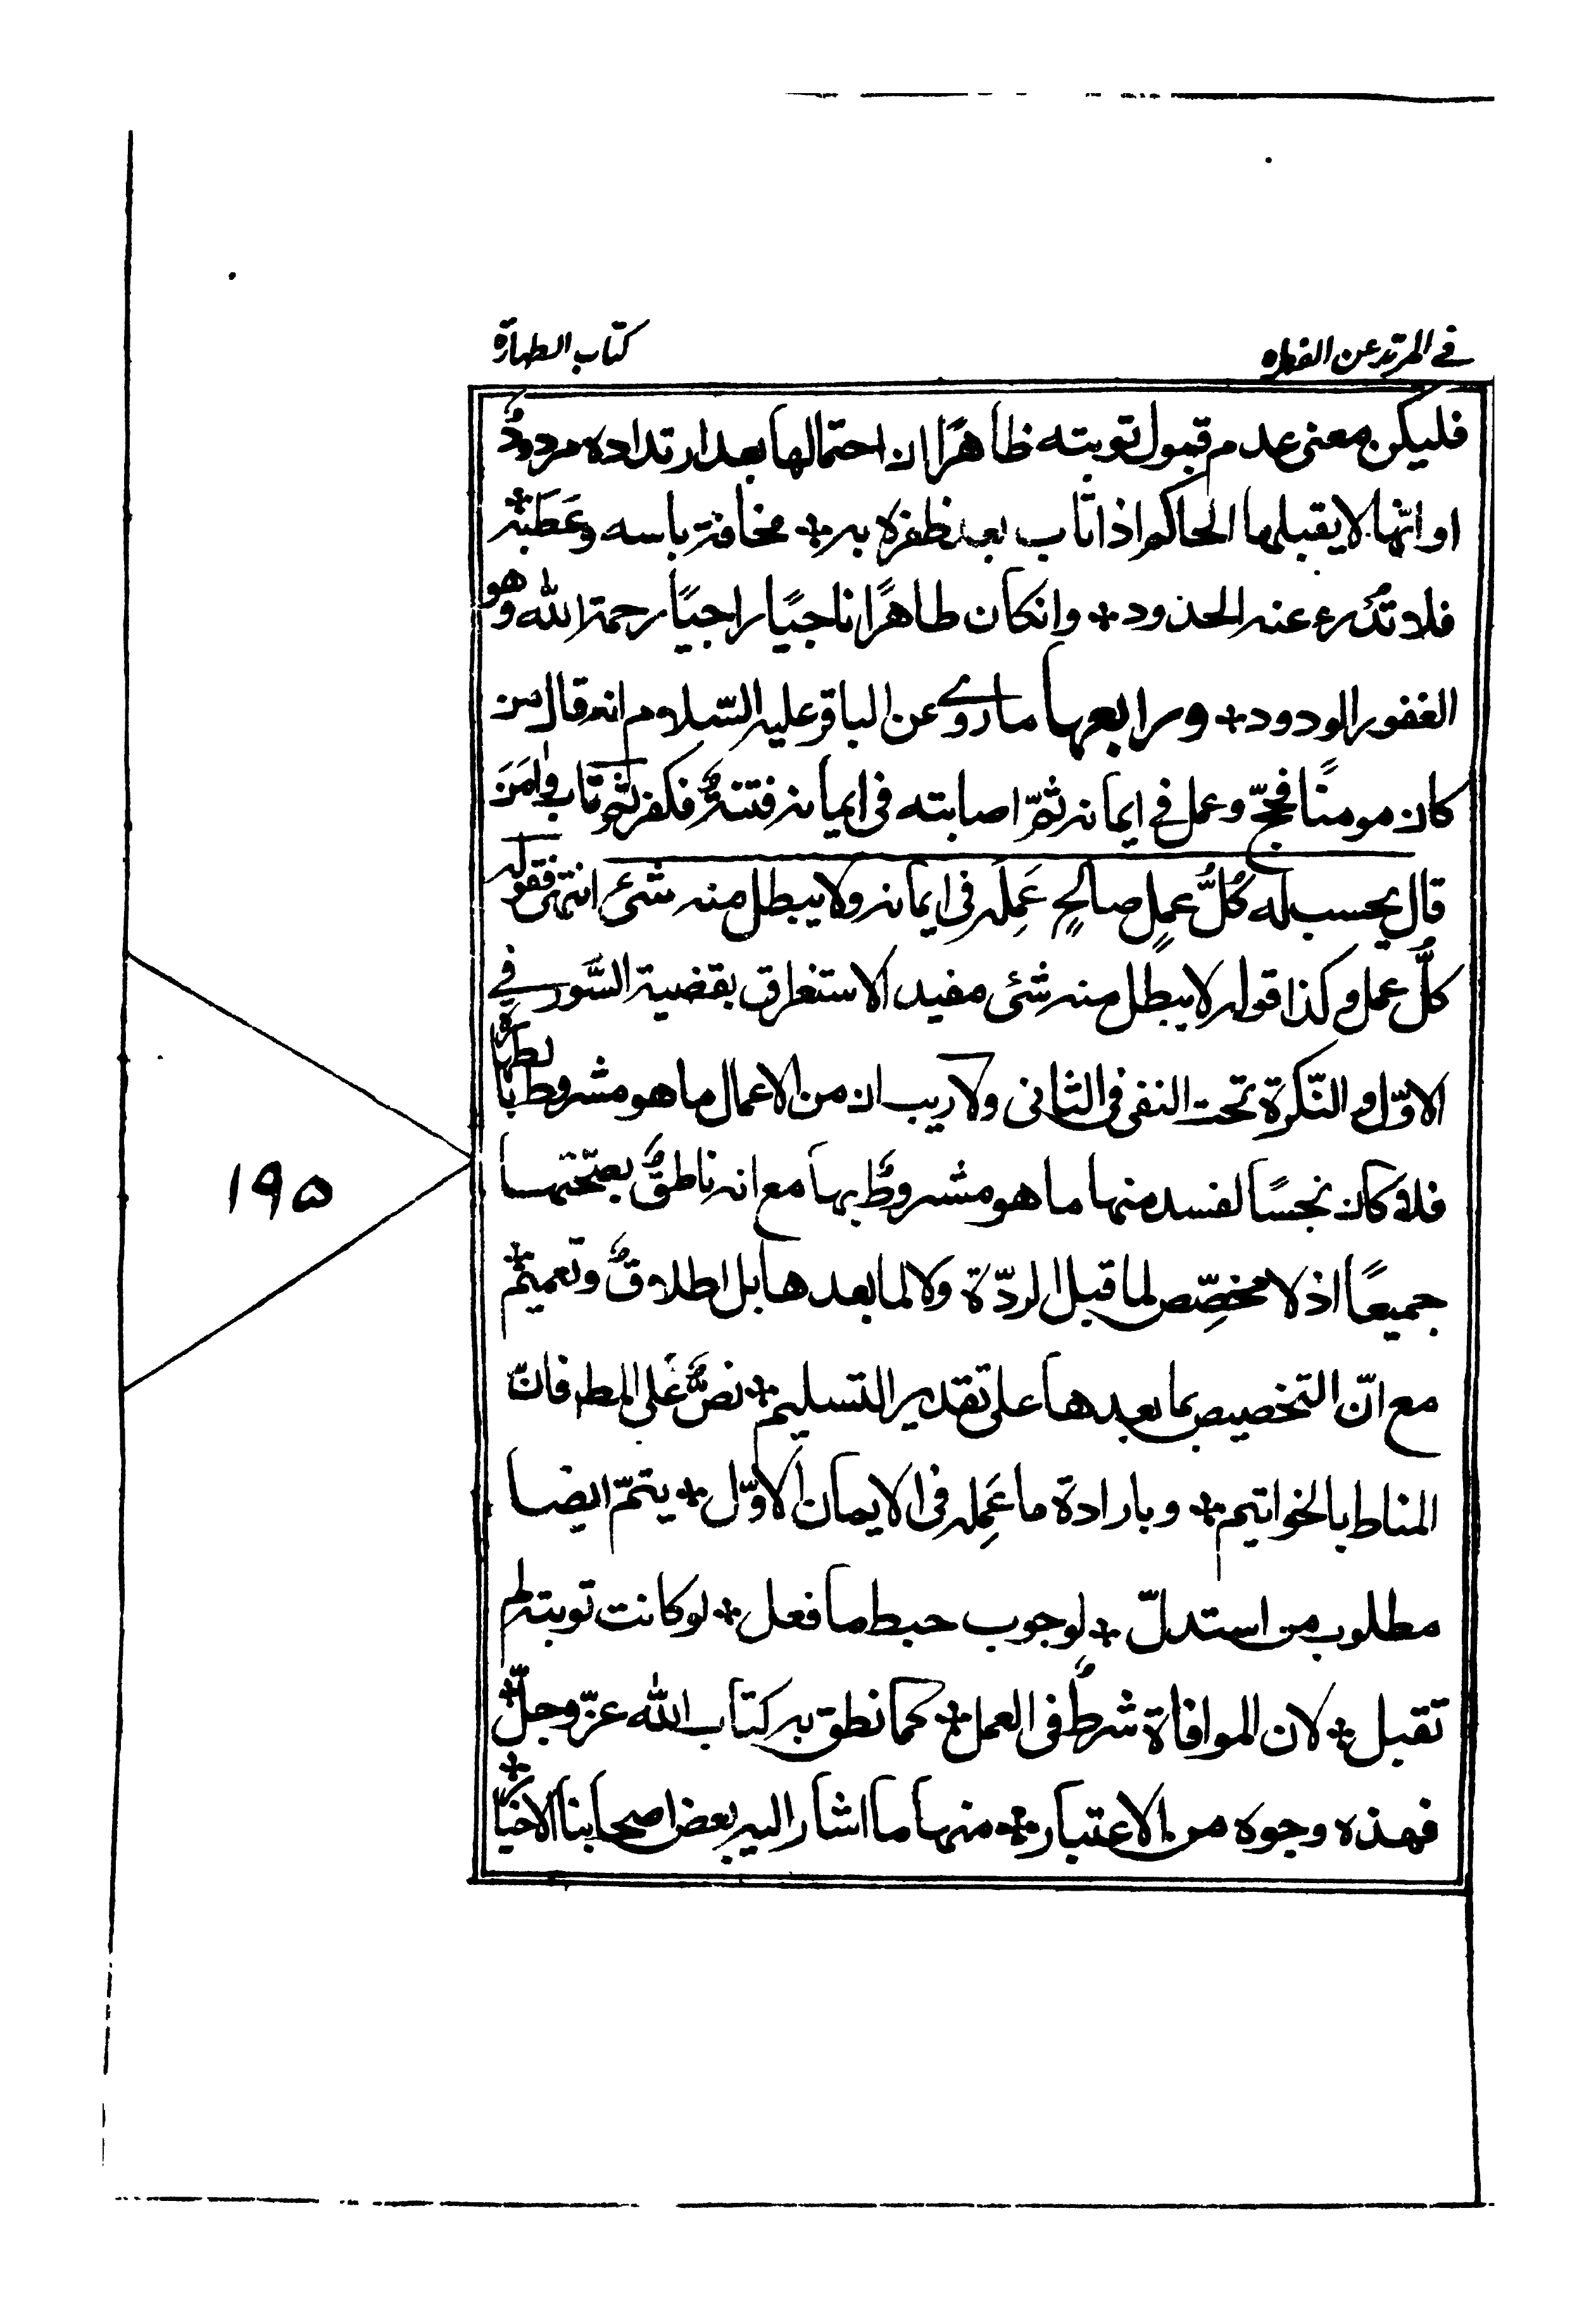 في المرتد عن الفطره
كتاب الطهارة
فليكن معنى عدم قبول توبته ظاهرًا ان احتمالها بعد ارتداده مردودٌ
او انّها لا يقبلها الحاكم اذا تاب بعد ظفره به * مخافة باسه وعَطَبَتِه *
فلا تُدرء عنه الحدود * وانكان طاهرًا ناجيًا راجيًا رحمة الله وهو
الغفور الودود * ورابعها ما روي عن الباقر عليه السّلام انه قال من
كان مومنًا فحجّ وعمل في ايمانه ثمّ اصابته في ايمانه فتنةٌ فكفر ثمّ تاب وامَنَ
قال يحسب له كُلُّ عملٍ صالحٍ عَمِلَه في ايمانه ولا يبطل منه شئ انتهى فقوله
كلُّ عمل وكذا قوله لا يبطل منه شئ مفيد الاستغراق بقضية السَّور في
الاوّل والنّكرة تحت النفى فى الثانى ولا ريب ان من الاعمال ما هو مشروط بالطهارة
فلو كان نجسًا لفسد منها ما هو مشروطٌ بها مع انه ناطقٌ بصحّتها
جميعًا اذ لا مخصِّص لما قبل الردّة ولا لما بعدها بل اطلاقٌ وتعميمٌ *
مع انّ التخصيص بما بعدها على تقدير التسليم * نصٌّ على المط فانّ
المناط بالخواتيم * وبارادة ما عَمِله فى الايمان الاوّل * يتمّ ايضا
مطلوب من استدلّ * لوجوب حبط ما فعل * لو كانت توبته لم
تقبل * لان الموافاة شرطٌ فى العمل * كما نطق به كتاب الله عزّ وجلّ *
فهذه وجوه من الاعتبار * منها ما اشار اليه بعض اصحابنا الاخيار *
١٩٥